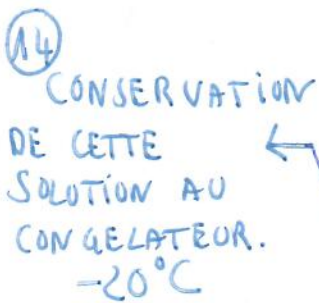 14
CONSERVATION
DE CETTE
SOLUTION AU
CONGELATEUR.
-20°C